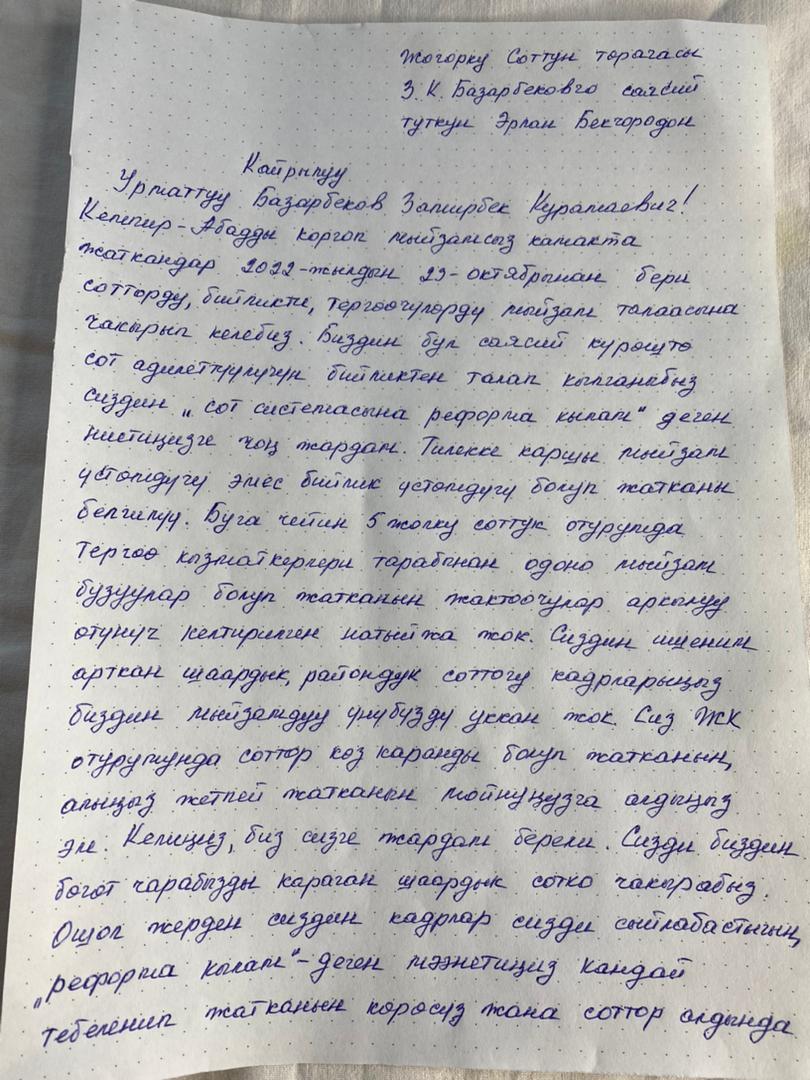 Жогорку Соттун торагасы
З.К. Базарбековго саясий
туткун Эрлан Бекчородон
Кайрылуу
Урматтуу Базарбеков Замирбек Курамаевич!
Кемпир-Абадды коргоп мыйзамсыз камакта
жаткандар 2022-жылдын 23-октябрынан бери
сотторду, бийликти, тергоочулорду мыйзам талаасына
чакырып келебиз. Биздин бул саясий курошто
сот адилеттүүлүгүн бийликтен талап кылганыбыз
сиздин „сот системасына реформа кылам" деген
ниетиңизге чоң жардам. Тилекке каршы мыйзам
устомдугу эмес бийлик устомдугу болуп жатканы
белгилүү. Буга чейин 5 жолку соттук отурумда
тергоо кызматкерлери тарабынан одоно мыйзам
бузуулар болуп жатканын жактоочулар аркылуу
отунуч келтирилген натыйжа жок. Сиздин ишеним
арткан шаардык, райондук соттогу кадрларыңыз
биздин мыйзамдуу унубузду уккан жок. Сиз ЖК
отурумунда соттор коз каранды болуп жатканын,
алыңыз жетпей жатканын мойнуңузга алдыңыз
эле. Келиңиз, биз сизге жардам берели. Сизди биздин
богот чарабызды караган шаардык сотко чакырабыз.
Ошол жерден сиздин кадрлар сизди сыйлабастыгын,
„реформа кылам"-деген мээнетиңиз кандай
тебеленип жатканын коросуз жана соттор алдында